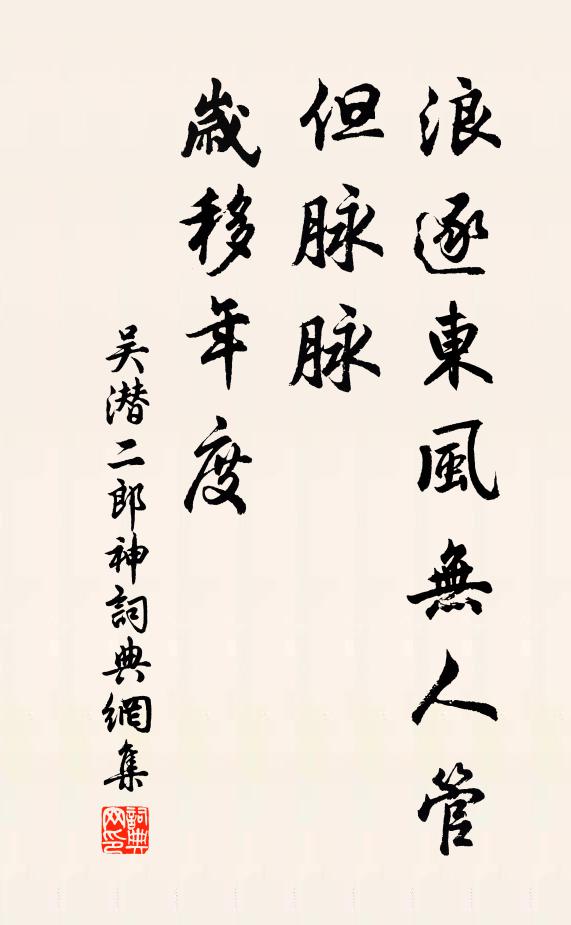 浪逐東風無人管
但脉脉
歲移年度
吴潜二郎神詞典網集
詞典網印